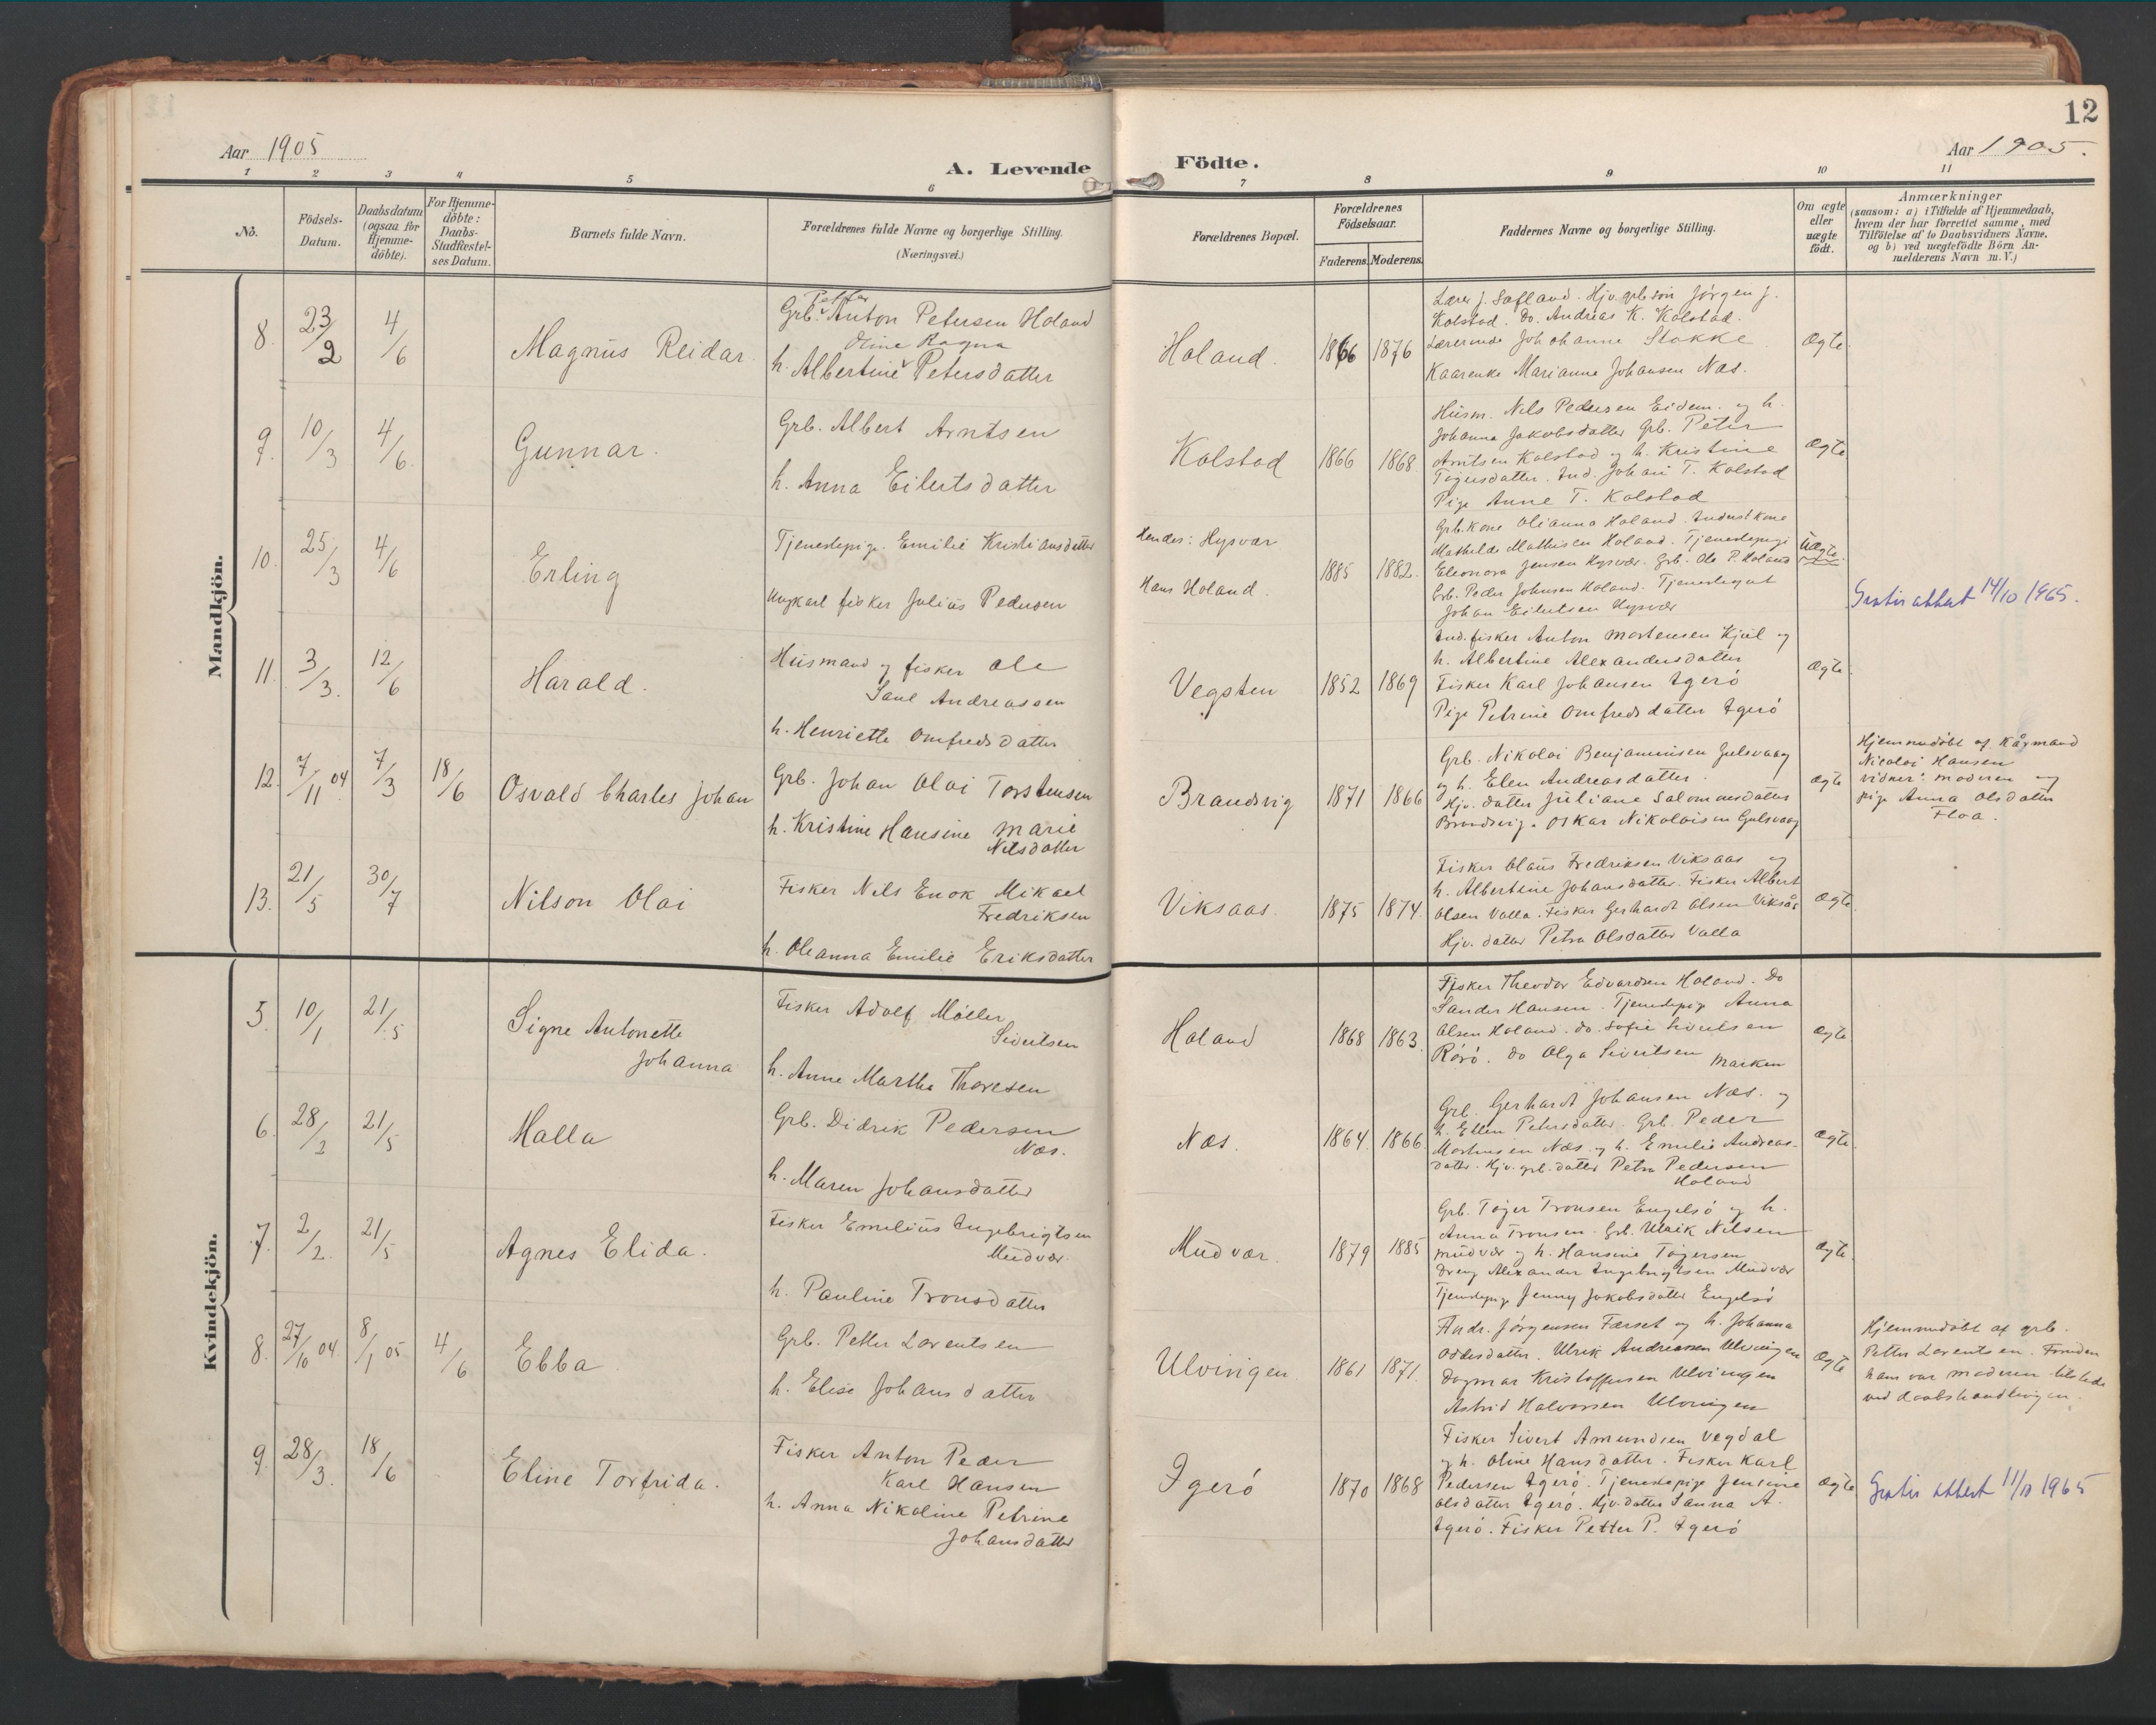 12
Aar 1905
A. Levende
Födte.
Aar 1905.
1 2 3 4 5 6 7 8 9 10 11
No.
Födsels-
Datum.
Daabsdatum
(ogsaa for
Hjemme-
döbte).
For Hjemme-
döbte:
Daabs-
Stadfæstel-
ses Datum.
Barnets fulde Navn.
Forældrenes fulde Navne og borgerlige Stilling.
(Næringsvei.)
Forældrenes Bopæl.
Forældrenes
Födselsaar.
Faderens. Moderens.
Faddernes Navne og borgerlige Stilling.
Om ægte
eller
uægte
födt.
Anmærkninger
(saasom: a) i Tilfælde af Hjemmedaab,
hvem der har forrettet samme, med
Tilföielse af to Daabsvidners Navne,
og b) ved uægtefödte Börn An-
melderens Navn m. V.)
Mandkjön.
8. 23/2 4/6
Magnus Reidar
Petter
Grb. Anton Petersen Holand
Oline Ragna
h. Albertine Petersdatter
Holand.
1866 1876
Lærer J. Safland. Hjv. grb. sön Jörgen J.
Kolstad. Do. Andreas K. Kolstad.
Lærerinde Johanne Stokke
Marianne Johansen Næs.
Ægte
9. 10/3 4/6
Gunnar.
Grb. Albert Arntsen
h. Anna Eilertsdatter
Kolstad
1866 1868.
Husm. Nils Pedersen Eidem. og h.
Johanna Jakobsdatter Grb. Peter
Arntsen Kolstad og h. Kristine
Tögersdatter. Ind. Johan T. Kolstad
Pige Anne T. Kolstad
Ægte
10. 25/3 4/6
Erling
Tjenestepige. Emilie Kristiansdatter
Ungkarl fisker Julius Pedersen
Hendes: Hysvær
Hans Holand.
1885 1882.
Grb. Kone Olianna Holand. Inderst Kone
Mathilde Mathisen Holand. Tjenestepige
Eleonora Jensen Hysvær. Grb. Ole P. Holand
Grb. Peder Johnsen Holand. Tjenestegut
Johan Eilertsen Hysvær
Uægte.
Gratis attest 14/10 1965.
11. 3/3. 12/6
Harald.
Husmand og fisker Ole
Saul Andreassen
h. Henriette Omfredsdatter
Vegsten
1852 1869
Ind. fisker Anton Mortensen Kjul og
h. Albertine Alexandersdatter
Fisker Karl Johansen Igerö
Pige Petrine Omfredsdatter Igerö
Ægte
12. 7/11 04 7/3 18/6
Osvald Charles Johan
Grb. Johan Olai Torstensen
h. Kristine Hansine Marie
Nilsdatter
Brandsvig
1871 1866
Grb. Nikolai Benjaminsen Gulsvaag
og h. Elen Andreasdatter.
Hjv. datter Juliane Salomonsdatter
Brandsvig. Oskar Nikolaisen Gulsvaag
Ægte
Hjemmedöbt af Kårmand
Nicolai Hansen
vidner: moderen og
pige Anna Olsdatter
Floa.
13. 21/5 30/7
Nilson Olai
Fisker Nils Enok Mikael
Fredriksen
h. Oleanna Emilie Eriksdatter
Viksaas.
1875 1874.
Fisker Olaus Fredriksen Viksaas og
h. Albertine Johansdatter. Fisker Albert
Olsen Valla. Fisker Gerhardt Olsen Viksås
Hjv. datter Petra Olsdatter Valla
Ægte.
Kvindekjön.
5. 10/1 21/5
Signe Antonette
Johanna
Fisker Adolf Möller
Sivertsen
h. Anne Martha Thoresen
Holand
1868 1863.
Fisker Theodor Edvardsen Holand. Do
Sander Hansen. Tjenestepige Anna
Olsen Holand. do. Sofie Sivertsen
Rörö. do Olga Sivertsen Marken
Ægte
6. 28/2 21/5
Halla
Grb. Didrik Pedersen
Næs.
h. Maren Johansdatter
Næs.
1864. 1866.
Grb. Gerhardt Johansen Næs. og
h. Ellen Petersdatter. Grb. Peder
Mortensen Næs. og h. Emilie Andreas-
datter. Hjv. grb. datter Petra Pedersen
Holand
Ægte.
7. 2/2. 21/5
Agnes Elida.
Fisker Emilius Ingebrigtsen
Mudvær.
h. Pauline Tronsdatter
Mudvær.
1879 1885
Grb. Töger Tronsen Engelsö og h.
Anna Tronsen. Grb. Ulrik Nilsen
Mudvær og h. Hansine Tögersen
Dreng Alexander Ingebrigtsen Mudvær
Tjenestepige Jenny Jakobsdatter Engelsö
Ægte.
8. 27/10 04. 8/1 05 4/6
Ebba
Grb. Petter Lorentsen
h. Elise Johansdatter
Ulvingen.
1861 1871.
Andr. Jörgensen Færset og h. Johanna
Oddesdatter. Ulrik Andreassen Ulvingen
Dagmar Kristoffersen Ulvingen
Astrid Halvorsen Ulvingen
Ægte
Hjemmedöbt af grb.
Petter Lorentsen. Foruden
ham var moderen tilstede
ved daabshandlingen.
9. 28/3. 18/6
Eline Torfrida.
Fisker Anton Peder
Karl Hansen
h. Anna Nikoline Petrine
Johansdatter
Igerö
1870 1868
Fisker Sivert Amundsen Vegdal
og h. Oline Hansdatter. Fisker Karl
Pedersen Igerö. Tjenestepige Jensine
Olsdatter Igerö. Hjv. datter Sanna A.
Igerö. Fisker Petter P. Igerö
Ægte
Gratis attest 11/10 1965